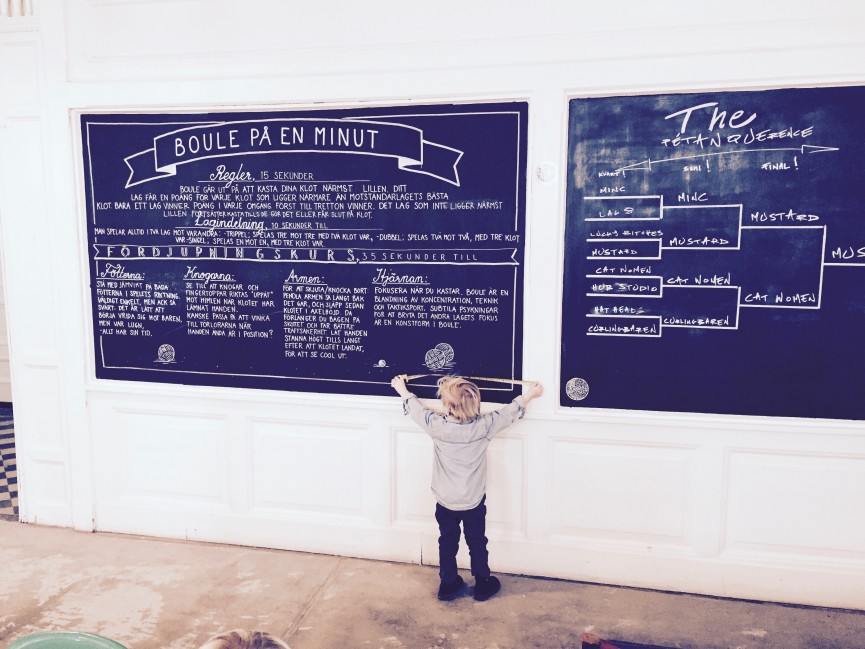 BOULE PÅ EN MINUT
Regler, 15 SEKUNDER
BOULE GÅR UT PÅ ATT KASTA DINA KLOT NÄRMST LILLEN. DITT
LAG FÅR EN POÄNG FÖR VARJE KLOT SOM LIGGER NÄRMARE ÄN MOTSTÅNDARLAGETS BÄSTA
KLOT. BARA ETT LAG VINNER POÄNG I VARJE OMGÅNG. FÖRST TILL TRETTON VINNER. DET LAG SOM INTE LIGGER NÄRMST
LILLEN FORTSÄTTER KASTA TILLS DE GÖR DET ELLER FÅR SLUT PÅ KLOT.
Lagindelning, 10 SEKUNDER TILL
MAN SPELAR ALLTID I TVÅ LAG MOT VARANDRA: -TRIPPEL; SPELAS TRE MOT TRE MED TVÅ KLOT VAR, -DUBBEL; SPELAS TVÅ MOT TVÅ, MED TRE KLOT
VAR -SINGEL; SPELAS EN MOT EN, MED TRE KLOT VAR
FÖRDJUPNINGSKURS, 35 SEKUNDER TILL
Fötterna:
STÅ MED JÄMVIKT PÅ BÅDA
FÖTTERNA I SPELETS RIKTNING.
VÄLDIGT ENKELT, MEN ACK SÅ
SVÅRT. DET ÄR LÄTT ATT
BÖRJA VRIDA SIG MOT BAREN,
MEN VAR LUGN,
-ALLT HAR SIN TID.
Knogarna:
SE TILL ATT KNOGAR, OCH
FINGERTOPPAR RIKTAS "UPPÅT"
MOT HIMLEN NÄR KLOTET HAR
LÄMNAT HANDEN.
KANSKE PASSA PÅ ATT VINKA
TILL FÖRLORARNA NÄR
HANDEN ÄNDÅ ÄR I POSITION?
Armen:
FÖR ATT SKJUTA/KNOCKA BORT
PENDLA ARMEN SÅ LÅNGT BAK
DET GÅR, OCH SLÄPP SEDAN
KLOTET I AXELHÖJD. DÅ
FÖRLÄNGER DU BAGEN PÅ
SKOTTET OCH FÅR BÄTTRE
TRÄFFSÄKERHET. LÅT HANDEN
STANNA HÖGT TILLS LÅNGT
EFTER ATT KLOTET LANDAT,
FÖR ATT SE COOL UT.
Hjärnan:
FOKUSERA NÄR DU KASTAR. BOULE ÄR EN
BLANDNING AV KONCENTRATION, TEKNIK
OCH TAKTIKSPORT. SUBTILA PSYKNINGAR
FÖR ATT BRYTA DET ANDRA LAGETS FOKUS
ÄR EN KONSTFORM I BOULE.
The
PÉTANQUERENCE
KVART! SEMI! FINAL!
MINC
LAG 5
LUCKY BITCHES
MUSTARD
CAT WOMEN
HUR STUDIO
HAT HEADS
CURLINGBAREN
MINC
MUSTARD
CAT WOMEN
CURLINGBAREN
MUSTARD
CAT WOMEN
MUS